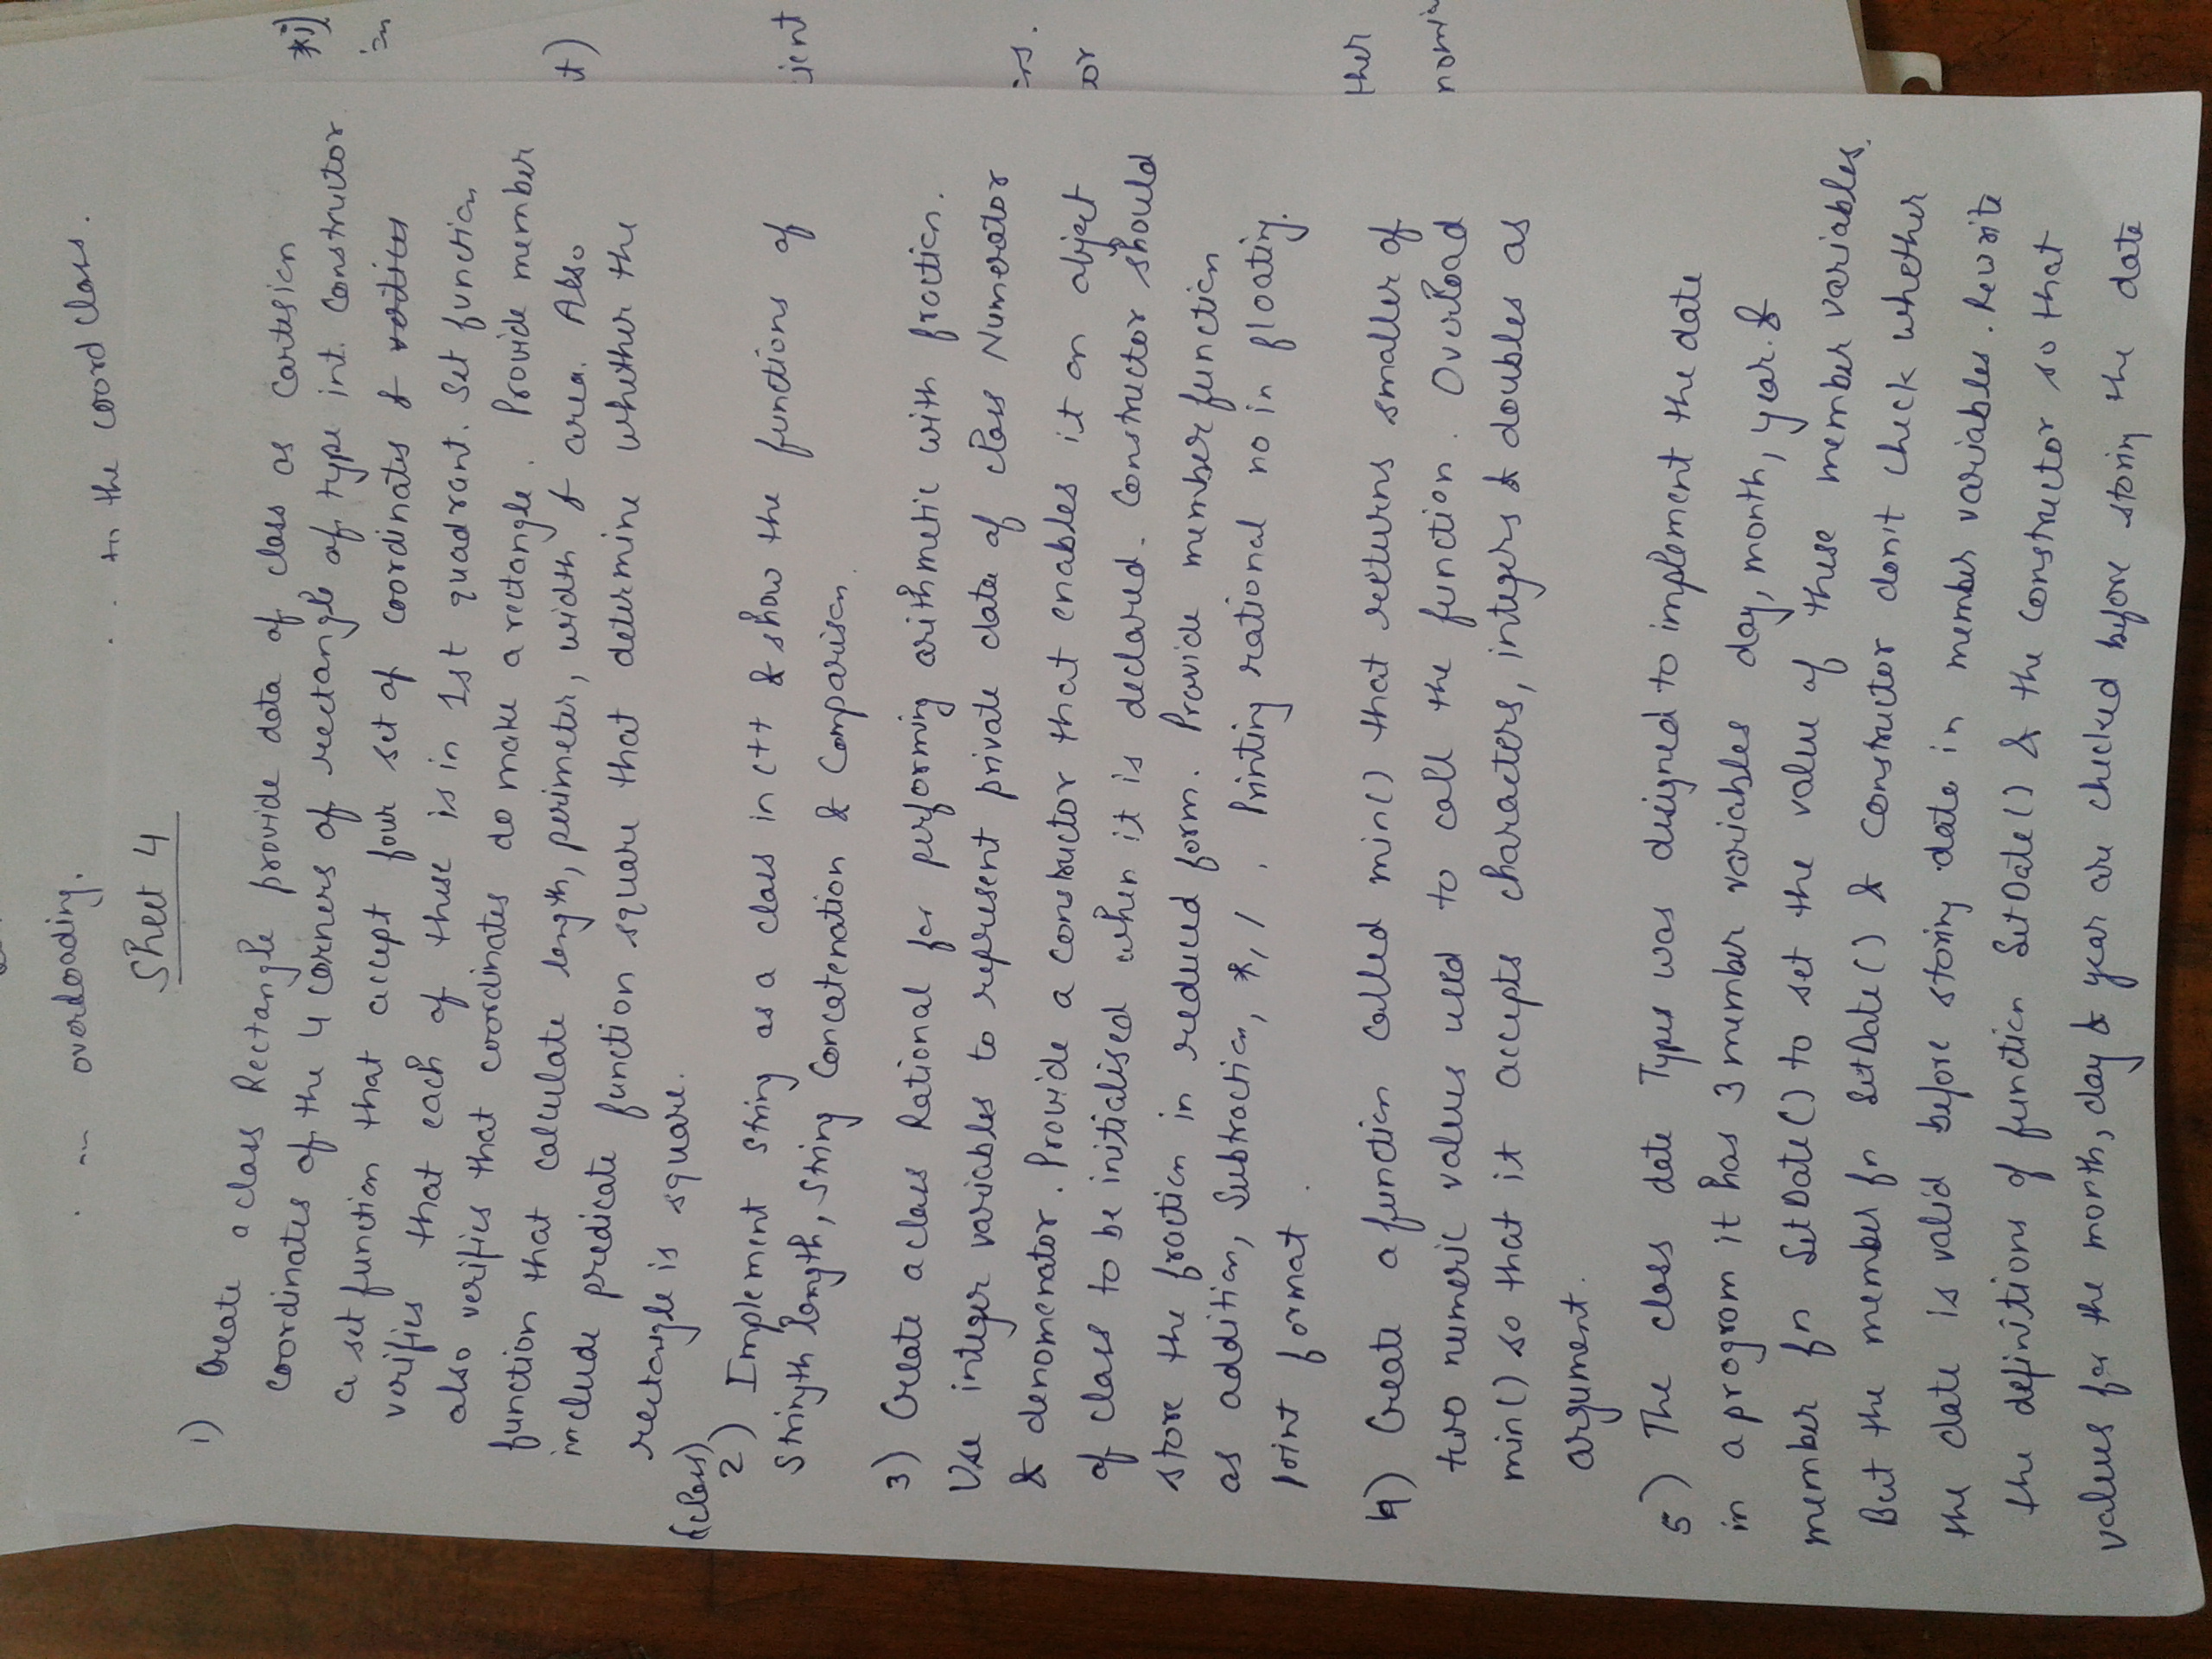 overloading.
in the coord class.
Sheet 4
1) Create a class Rectangle provide data of class as cartesian
coordinates of the 4 corners of rectangle of type int. Constructor
a set function that accept four set of coordinates &
varifies that each of these is in 1st quadrant. Set function
also verifies that coordinates do make a rectangle. Provide member
function that calculate length, perimeter, width & area. Also
include predicate function square that determine whether the
rectangle is square.
(class)
2) Implement string as a class in c++ & show the functions of
String length, String Concatenation & Comparison.
3) Create a class Rational for performing arithmetic with fraction.
Use integer variables to represent private data of class Numerator
& denomerator. Provide a constructor that enables it an object
of class to be initialised when it is declared. Constructor should
store the fraction in reduced form. Provide member function
as addition, Subtraction, *, / . Printing rational no in floating.
point format.
4) Create a function called min() that returns smaller of
two numeric values used to call the function. Overload
min() so that it accepts characters, integers & doubles as
argument.
5) The class date Type was designed to implement the date
in a program it has 3 member variables day, month, year. &
member fn SetDate() to set the value of these member variables.
But the member fn SetDate() & constructor don't check whether
the date is valid before storing data in member variables. Rewrite
the definitions of function SetDate() & the constructor so that
values for the month, day & year are checked before storing the date
ient
ther